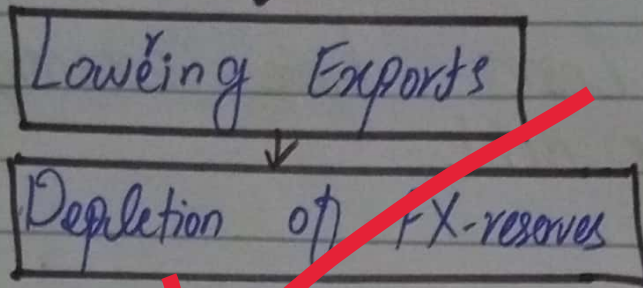 Lowering Exports
Depletion of FX-reserves